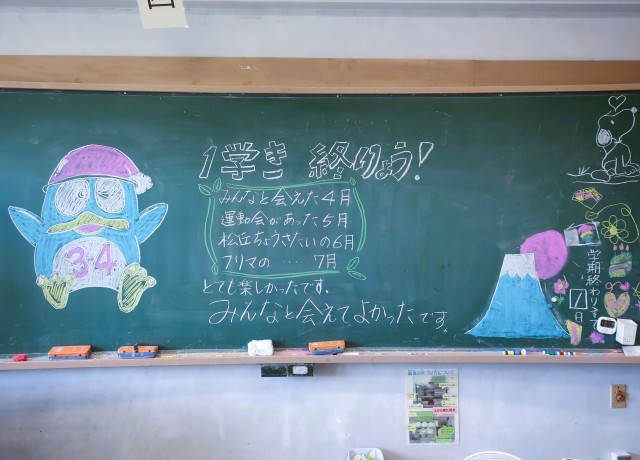 1学き 終りょう!
みんなと会えた4月
運動会があった5月
松丘ちょうさたいの6月
フリマの ‥‥ 7月
とても楽しかったです。
みんなと会えてよかったです。
3-4
学期終わりまで
1
日